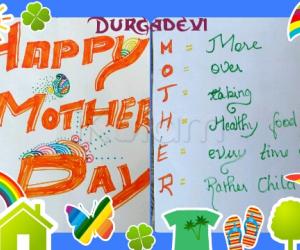 DURGADEVI
HAPPY
MOTHER
DAY
M = More
O = over
T = taking
H = Healthy food
E = every time
R = Rather Child